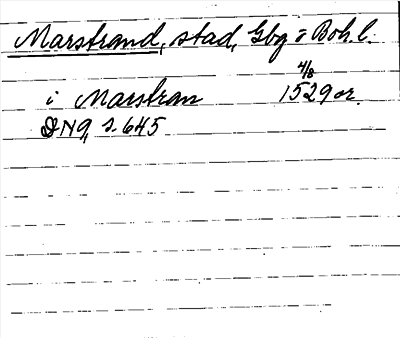 Marstrand, stad, Gbg o Boh. l.
4/8
i Marstran 1529 or.
DN 9, s. 645